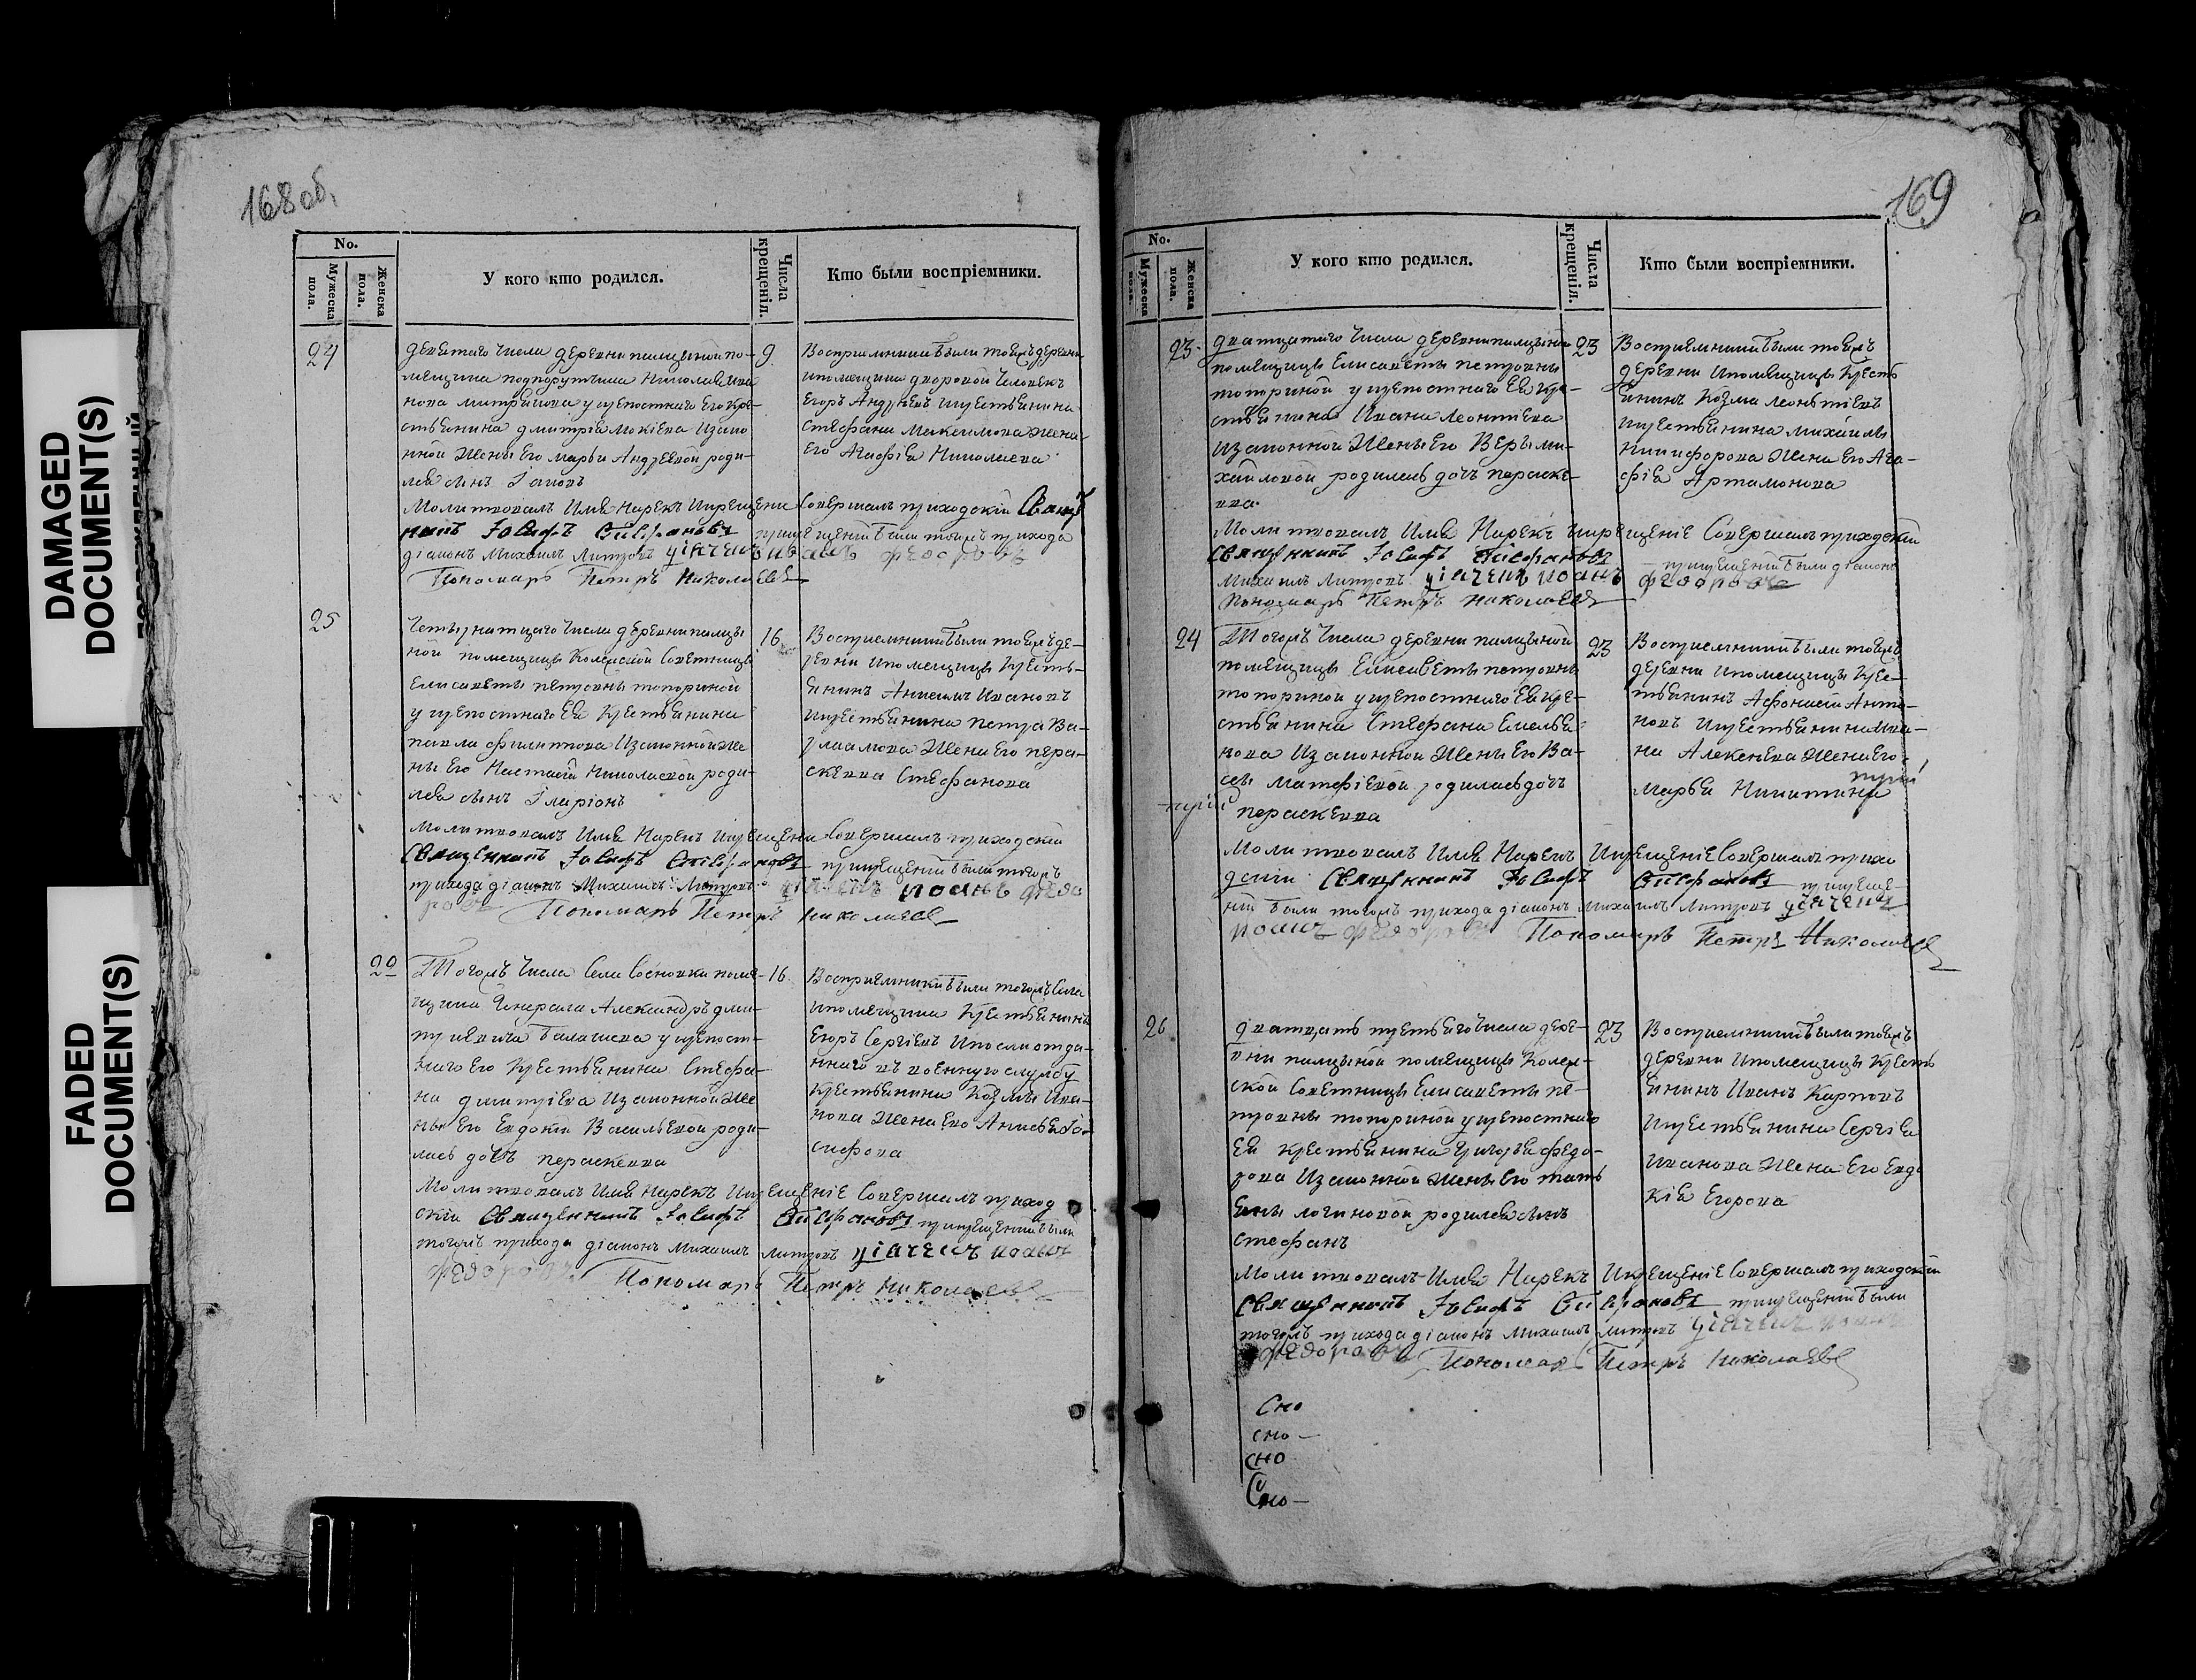 DAMAGED
DOCUMENT(S)
FADED
DOCUMENT(S)
168 об.
No.
Мужеска
пола.
Женска
пола.
У кого кто родился.
Числа
крещенія.
Кто были воспріемники.
24
девятаго числа деревни палцыной по-
мещика подпорутчика Николая Ива
нова Митракова у крепостнаго Его кре-
стьянина Дмитрія Мокіева Изако
нной жены Его Марьи Андреевой роди-
лся сынъ Іаковъ
9
Восприемники были тоежъ деревни
ипомещика дворовой человекъ
Егоръ Андреевъ икрестьянина
Стефана Максимова жена
Его Агафія Николаева
Молитвовалъ Имя Нарекъ Икрещение Совершалъ приходскій Свящ
никъ Іосифъ Стефановъ прикрещеніи были тогожъ прихода
діаконъ Михаилъ Петровъ дьячекъ Иоанъ Федоровъ
Пономарь Петръ Николаевъ
25
Четырнатцаго числа деревни палцы
ной помещицы Колежской Советницы
Елисаветы Петровны Топориной
у крепостнаго Ея крестьянина
Павла Филиппова Изаконной же
ны Его Настасьи Николаевой роди-
лся сынъ Іларіонъ
16
Восприемники были тоежъ де-
ревни ипомещицы Кресть-
янинъ Анисимъ Ивановъ
икрестьянина Петра Ва-
рлаамова жена Его Пера-
скевва Стефанова
Молитвовалъ Имя Нарекъ Икрещение Совершалъ приходскій
Священникъ Іосифъ Стефановъ прикрещеніи были тогожъ
прихода діаконъ Михаилъ Петровъ дьячекъ Иоанъ Федо
ровъ Пономарь Петръ Николаевъ
20
Тогожъ числа Села Сосновки поме-
щика Генерала Александръ Дми-
тріевича Балашева у крепост-
наго Его Крестьянина Стефа-
на Димитріева Изаконной же
ны Его Евдокіи Васильевой роди-
лась дочь Пераскевва
16
Восприемники были тогожъ Села
ипомещика Крестьянинъ
Егоръ Сергіевъ Ипослиотда-
ннаго въ военную службу
Крестьянина Козмы Ива-
нова жена Его Анисья Іо-
сифова
Молитвовалъ Имя Нарекъ Икрещеніе Совершалъ приход
скій Священникъ Іосифъ Стефановъ прикрещеніи были
тогожъ прихода діаконъ Михаилъ Петровъ дьячекъ Иоанъ
Федоровъ Пономарь Петръ Николаевъ
169
No.
Мужеска
пола.
Женска
пола.
У кого кто родился.
Числа
крещенія.
Кто были воспріемники.
23
дватцатаго числа деревни палцыной
помещицы Елисаветы Петровны
Топориной у крепостнаго Ея кре-
стьянина Ивана Леонтіева
Изаконной жены Его Веры Ми-
хайловой родилась дочь Пераске-
вва
23
Восприемники были тоежъ
деревни ипомещицы Кресть
янинъ Козма Леонтіевъ
икрестьянина Михаила
Никифорова жена Его Ага-
фія Артамонова
Молитвовалъ Имя Нарекъ Икрещеніе Совершалъ приходскій
Священникъ Іосифъ Стефановъ прикрещеніи были діаконъ
Михаилъ Петровъ дьячекъ Иоанъ Федоровъ
Пономарь Петръ Николаевъ
24
Тогожъ числа деревни палцыной
помещицы Елисаветы Петровны
Топориной у крепостнаго Ея кре-
стьянина Стефана Емелья
нова Изаконной жены Его Ва-
сы Матфіевой родилась дочь
Пераскевва
23
Восприемники были тоежъ
деревни ипомещицы Крес-
тьянинъ Афонасій Анто-
новъ Икрестьянина Ива-
на Алексеева жена Его
Марья Никитина
Молитвовалъ Имя Нарекъ Икрещеніе Совершалъ прихо
дскій Священникъ Іосифъ Стефановъ прикреще-
ніи были тогожъ прихода діаконъ Михаилъ Петровъ дьячекъ
Иоанъ Федоровъ Пономарь Петръ Николаевъ
26
дватцать третьяго числа дере-
вни палцыной помещицы Колеж-
ской Советницы Елисаветы Пе-
тровны Топориной у крепостнаго
Ея крестьянина Григорья Федо-
рова Изаконной жены Его Тать
яны Логиновой родился сынъ
Стефанъ
23
Восприемники были тоежъ
деревни ипомещицы Кресть
янинъ Иванъ Карповъ
икрестьянина Сергія
Иванова жена Его Евдо
кія Егорова
Молитвовалъ Имя Нарекъ Икрещеніе Совершалъ приходскій
Священникъ Іосифъ Стефановъ прикрещеніи были
тогожъ прихода діаконъ Михаилъ Петровъ дьячекъ Иоанъ
Федоровъ Пономарь Петръ Николаевъ
Сно
сно-
сно
Сно-